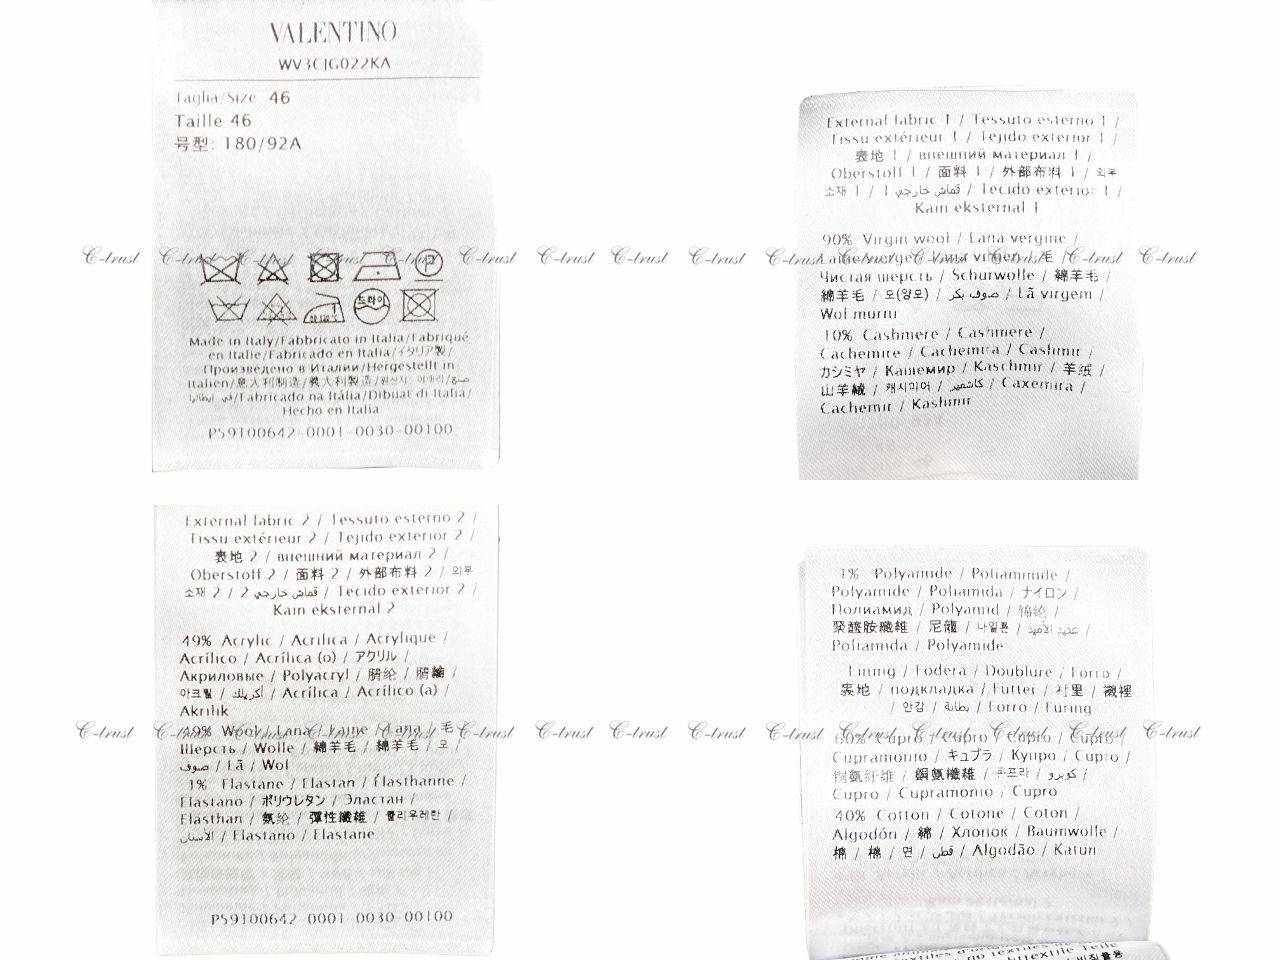 VALENTINO
WV3CJG022KA
Taglia/Size 46
Taille 46
号型: 180/92A
P
드라이
Made in Italy/Fabbricato in Italia/Fabriqué
en Italie/Fabricado en Italia/イタリア製/
Произведено в Италии/Hergestellt in
Italien/意大利制造/義大利製造/원산지: 이태리/صنع
في إيطاليا/Fabricado na Itália/Dibuat di Italia/
Hecho en Italia
P59100642-0001-0030-00100
External fabric 1 / Tessuto esterno 1 /
Tissu extérieur 1 / Tejido exterior 1 /
表地 1 / внешний материал 1 /
Oberstoff 1 / 面料 1 / 外部布料 1 / 외부
소재 1 / 1 قماش خارجي / Tecido exterior 1 /
Kain eksternal 1
90% Virgin wool / Lana vergine /
Laine vierge / Lana virgen / 毛 /
Чистая шерсть / Schurwolle / 綿羊毛 /
綿羊毛 / 모(양모) / صوف بكر / Lã virgem /
Wol murni
10% Cashmere / Cashmere /
Cachemire / Cachemira / Cashmir /
カシミヤ / Кашемир / Kaschmir / 羊绒 /
山羊絨 / 캐시미어 / كاشمير / Caxemira /
Cachemir / Kashmir
External fabric 2 / Tessuto esterno 2 /
Tissu extérieur 2 / Tejido exterior 2 /
表地 2 / внешний материал 2 /
Oberstoff 2 / 面料 2 / 外部布料 2 / 외부
소재 2 / 2 قماش خارجي / Tecido exterior 2 /
Kain eksternal 2
49% Acrylic / Acrilica / Acrylique /
Acrílico / Acrílica (o) / アクリル /
Акриловые / Polyacryl / 腈纶 / 腈綸 /
아크릴 / أكريليك / Acrílica / Acrílico (a) /
Akrilik
49% Wool / Lana / Laine / Lana / 毛 /
Шерсть / Wolle / 綿羊毛 / 綿羊毛 / 모 /
صوف / Lã / Wol
1% Elastane / Elastan / Élasthanne /
Elastano / ポリウレタン / Эластан /
Elasthan / 氨纶 / 彈性纖維 / 폴리우레탄 /
الأستان / Elastano / Elastane
P59100642-0001-0030-00100
1% Polyamide / Poliammide /
Polyamide / Poliamida / ナイロン /
Полиамид / Polyamid / 锦纶 /
聚醯胺纖維 / 尼龍 / 나일론 / عديد الأميد /
Poliamida / Polyamide
Lining / Fodera / Doublure / Forro /
裏地 / подкладка / Futter / 衬里 / 襯裡
/ 안감 / بطانة / Forro / Furing
60% Cupro / Cupro / Cupro / Cupro /
Cupramonio / キュプラ / Купро / Cupro /
铜氨纤维 / 銅氨纖維 / 큐프라 / كوبرو /
Cupro / Cupramonio / Cupro
40% Cotton / Cotone / Coton /
Algodón / 綿 / Хлопок / Baumwolle /
棉 / 棉 / 면 / قطن / Algodão / Katun
C-trust C-trust C-trust C-trust C-trust C-trust C-trust C-trust C-trust C-trust C-trust C-trust C-trust C-trust C-trust
C-trust C-trust C-trust C-trust C-trust C-trust C-trust C-trust C-trust C-trust C-trust C-trust C-trust C-trust C-trust